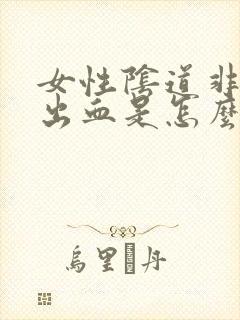 女性陰道非
出血是怎麼
烏里 丹